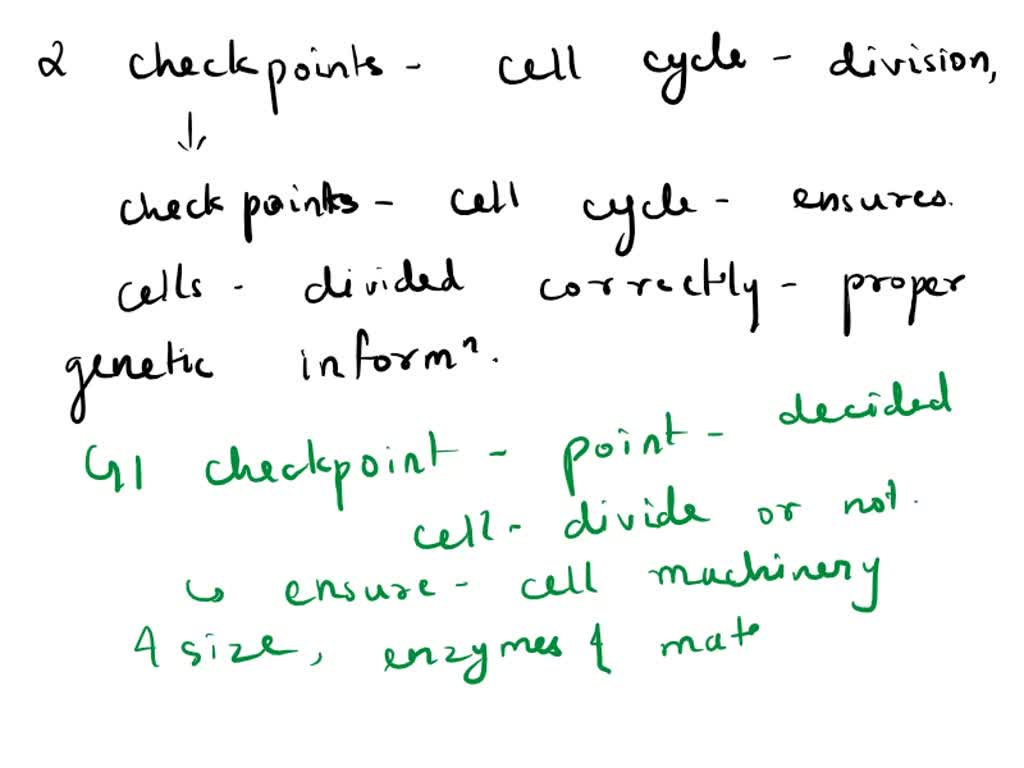 2 checkpoints - cell cycle - division,
↓
check points - cell cycle - ensures.
cells - divided correctly - proper
genetic informⁿ.
G1 checkpoint - point - decided
cell - divide or not.
↳ ensure - cell machinery
& size, enzymes & mate